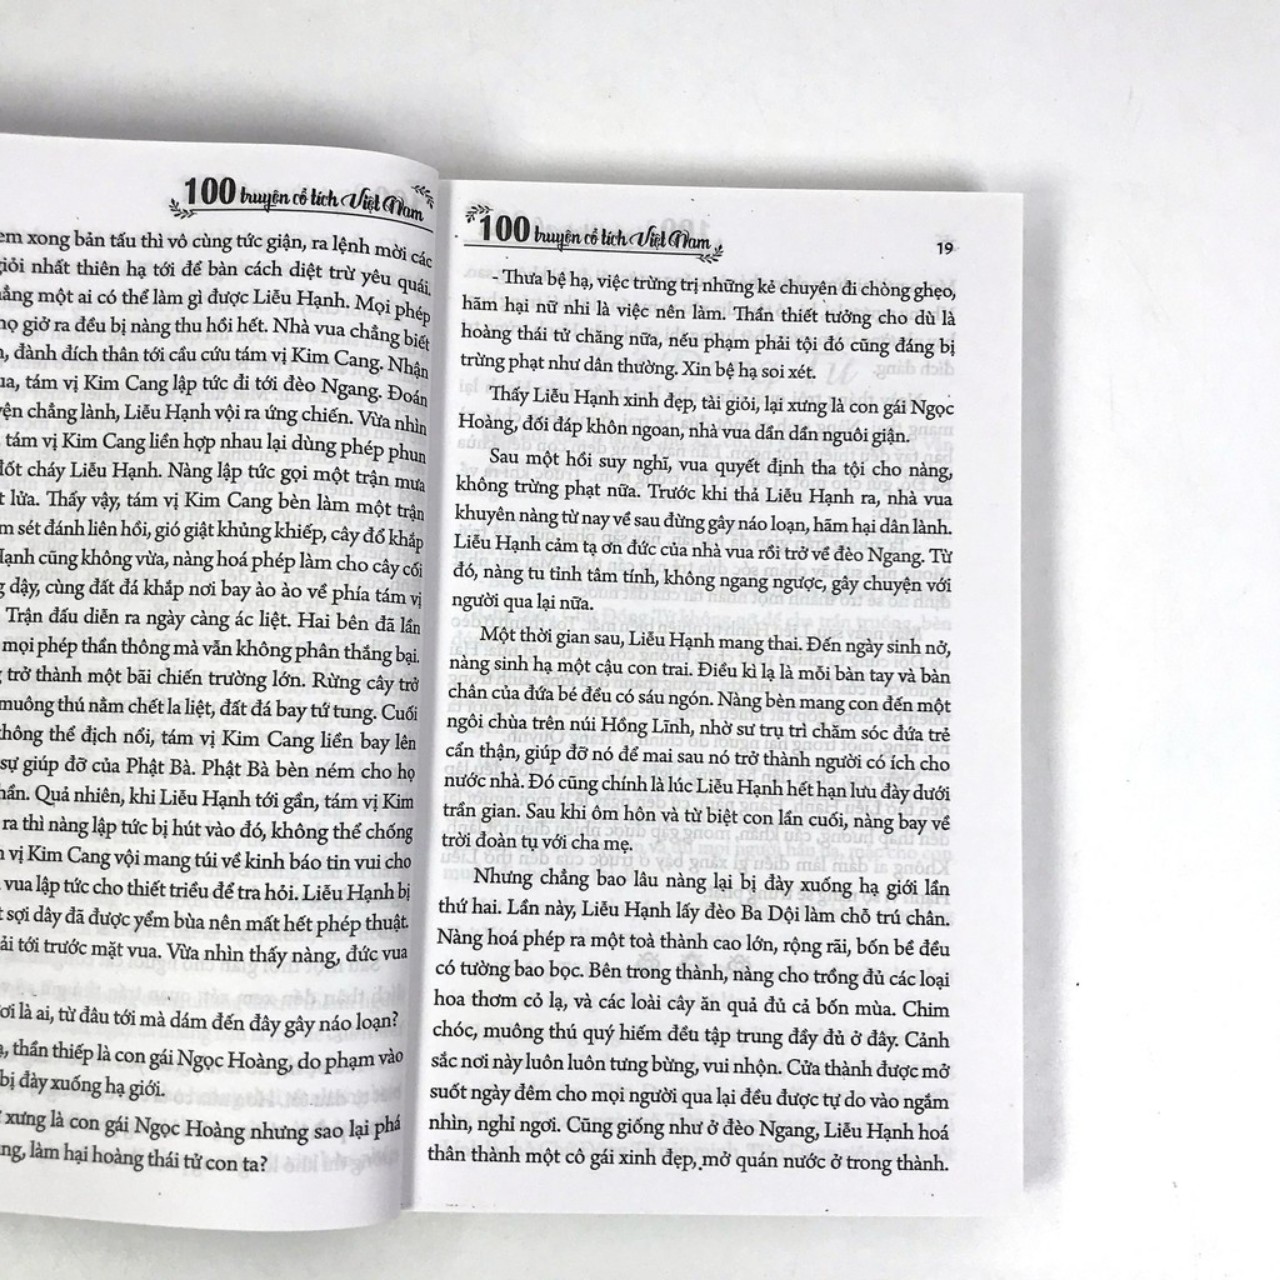 100 truyện cổ tích Việt Nam
em xong bản tấu thì vô cùng tức giận, ra lệnh mời các
giỏi nhất thiên hạ tới để bàn cách diệt trừ yêu quái.
ẳng một ai có thể làm gì được Liễu Hạnh. Mọi phép
họ giở ra đều bị nàng thu hồi hết. Nhà vua chẳng biết
đành đích thân tới cầu cứu tám vị Kim Cang. Nhận
ua, tám vị Kim Cang lập tức đi tới đèo Ngang. Đoán
yện chẳng lành, Liễu Hạnh vội ra ứng chiến. Vừa nhìn
tám vị Kim Cang liền hợp nhau lại dùng phép phun
đốt cháy Liễu Hạnh. Nàng lập tức gọi một trận mưa
t lửa. Thấy vậy, tám vị Kim Cang bèn làm một trận
m sét đánh liên hồi, gió giật khủng khiếp, cây đổ khắp
Hạnh cũng không vừa, nàng hoá phép làm cho cây cối
g dậy, cùng đất đá khắp nơi bay ào ào về phía tám vị
Trận đấu diễn ra ngày càng ác liệt. Hai bên đã lần
mọi phép thần thông mà vẫn không phân thắng bại.
g trở thành một bãi chiến trường lớn. Rừng cây trở
muông thú nằm chết la liệt, đất đá bay tứ tung. Cuối
không thể địch nổi, tám vị Kim Cang liền bay lên
sự giúp đỡ của Phật Bà. Phật Bà bèn ném cho họ
hần. Quả nhiên, khi Liễu Hạnh tới gần, tám vị Kim
ra thì nàng lập tức bị hút vào đó, không thể chống
m vị Kim Cang vội mang túi về kinh báo tin vui cho
vua lập tức cho thiết triều để tra hỏi. Liễu Hạnh bị
t sợi dây đã được yểm bùa nên mất hết phép thuật.
ải tới trước mặt vua. Vừa nhìn thấy nàng, đức vua
ơi là ai, từ đâu tới mà dám đến đây gây náo loạn?
ạ, thần thiếp là con gái Ngọc Hoàng, do phạm vào
bị đày xuống hạ giới.
xưng là con gái Ngọc Hoàng nhưng sao lại phá
ng, làm hại hoàng thái tử con ta?
100 truyện cổ tích Việt Nam 19
- Thưa bệ hạ, việc trừng trị những kẻ chuyên đi chòng ghẹo,
hãm hại nữ nhi là việc nên làm. Thần thiết tưởng cho dù là
hoàng thái tử chăng nữa, nếu phạm phải tội đó cũng đáng bị
trừng phạt như dân thường. Xin bệ hạ soi xét.
Thấy Liễu Hạnh xinh đẹp, tài giỏi, lại xưng là con gái Ngọc
Hoàng, đối đáp khôn ngoan, nhà vua dần dần nguôi giận.
Sau một hồi suy nghĩ, vua quyết định tha tội cho nàng,
không trừng phạt nữa. Trước khi thả Liễu Hạnh ra, nhà vua
khuyên nàng từ nay về sau đừng gây náo loạn, hãm hại dân lành.
Liễu Hạnh cảm tạ ơn đức của nhà vua rồi trở về đèo Ngang. Từ
đó, nàng tu tỉnh tâm tính, không ngang ngược, gây chuyện với
người qua lại nữa.
Một thời gian sau, Liễu Hạnh mang thai. Đến ngày sinh nở,
nàng sinh hạ một cậu con trai. Điều kì lạ là mỗi bàn tay và bàn
chân của đứa bé đều có sáu ngón. Nàng bèn mang con đến một
ngôi chùa trên núi Hồng Lĩnh, nhờ sư trụ trì chăm sóc đứa trẻ
cẩn thận, giúp đỡ nó để mai sau nó trở thành người có ích cho
nước nhà. Đó cũng chính là lúc Liễu Hạnh hết hạn lưu đày dưới
trần gian. Sau khi ôm hôn và từ biệt con lần cuối, nàng bay về
trời đoàn tụ với cha mẹ.
Nhưng chẳng bao lâu nàng lại bị đày xuống hạ giới lần
thứ hai. Lần này, Liễu Hạnh lấy đèo Ba Dội làm chỗ trú chân.
Nàng hoá phép ra một toà thành cao lớn, rộng rãi, bốn bề đều
có tường bao bọc. Bên trong thành, nàng cho trồng đủ các loại
hoa thơm cỏ lạ, và các loài cây ăn quả đủ cả bốn mùa. Chim
chóc, muông thú quý hiếm đều tập trung đầy đủ ở đây. Cảnh
sắc nơi này luôn luôn tưng bừng, vui nhộn. Cửa thành được mở
suốt ngày đêm cho mọi người qua lại đều được tự do vào ngắm
nhìn, nghỉ ngơi. Cũng giống như ở đèo Ngang, Liễu Hạnh hoá
thân thành một cô gái xinh đẹp, mở quán nước ở trong thành.